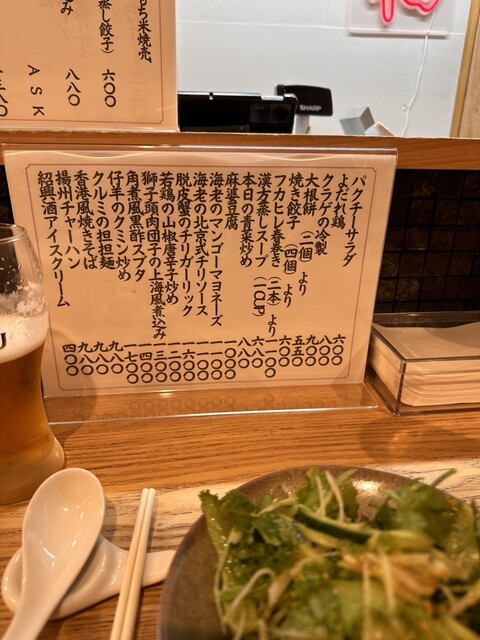 もち米焼売
蒸し餃子) 六〇〇
み 八八〇
ASK
八〇
SHARP
パクチーサラダ 六〇〇
よだれ鶏 八〇〇
クラゲの冷製 九〇〇
大根餅(二個)より
焼き餃子(四個)より
フカヒレ春巻き(二本)より
漢方蒸しスープ(1CUP)
本日の青菜炒め
麻婆豆腐
海老のマンゴーマヨネーズ
海老の北京式チリソース
脱皮蟹のチリガーリック
若鶏の山椒唐辛子炒め
獅子頭肉団子の上海風煮込み
角煮風黒酢スブタ
仔羊のクミン炒め
クルミの担担麺 九八〇
香港風焼きそば 九八〇
揚州チャーハン 九八〇
紹興酒アイスクリーム 四〇〇